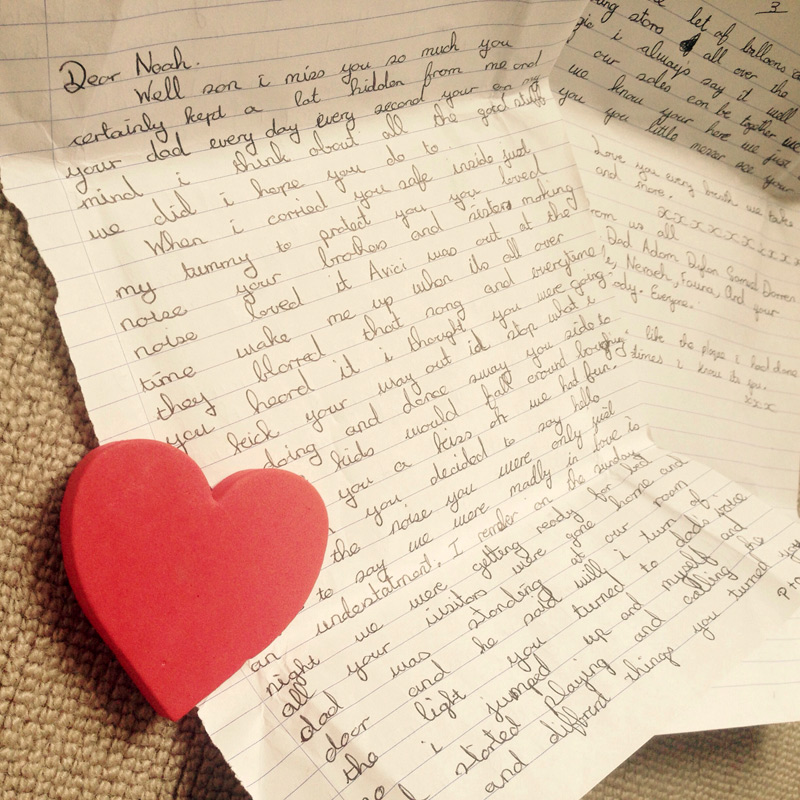 Dear Noah.
Well son i miss you so much you
certainly kept a lot hidden from me and
your dad every day every second your on my
mind i think about all the good stuff
we did i hope you do to.
When i carried you safe inside just
my tummy to protect you you loved
noise your brothers and sisters making
noise loved it Avici was out at the
time wake me up when its all over
they blarred that song and everytime
you heard it i thought you were going
kick your way out id stop what i
doing and dance sway you side to
kids would fall around
you a kiss oh we had fun.
you decided to say hello
the noise you were only just
to say we were madly in love is
an understatment. I rember on the sunday
night we were getting ready for bed
all your visitors were gone home and
dad was standing at our room
door and he said willy i turn of
the light you turned to dads voice
i jumped up and myself and
started playing and calling he
and diffrent things you turned you
pto
3
let of balloons
stars all over the
i always say it well
our soles can be together we
we know your here we just
you you little never see your
Love you every breath we take
and more.
xxxxxxxxx
from us all
Dad Adam Dylan Darren
And your
ody. Everyone.
like the plaque i had done
times i know its you.
xxx